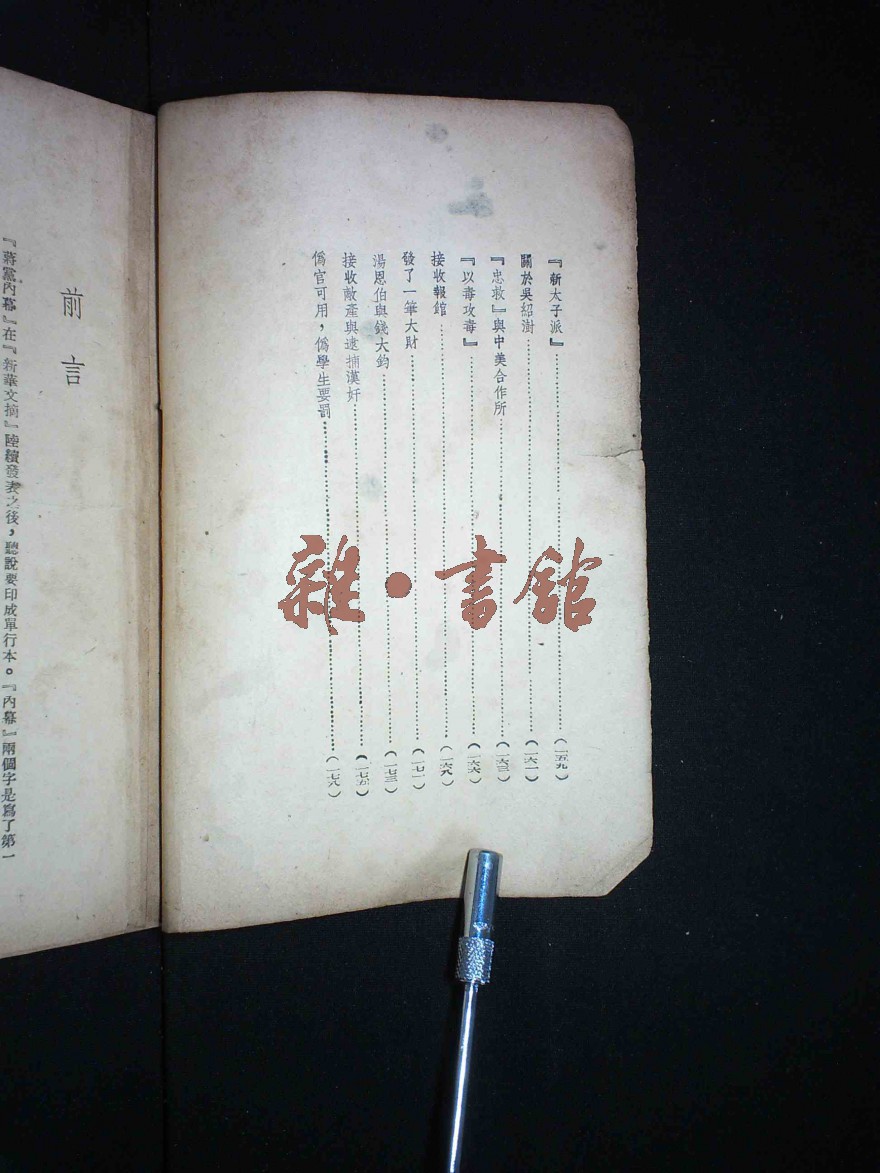 『新太子派』……（一五九）
關於吳紹澍……（一六一）
『忠救』與中美合作所……（一六三）
『以毒攻毒』……（一六六）
接收報館……（一六九）
發了一筆大財……（一七一）
湯恩伯與錢大鈞……（一七三）
接收敵產與逮捕漢奸……（一七五）
僞官可用，僞學生要罰……（一七八）
前言
『蔣黨內幕』在『新華文摘』陸續發表之後，聽說要印成單行本。『內幕』兩個字是寫了第一
雜·書館